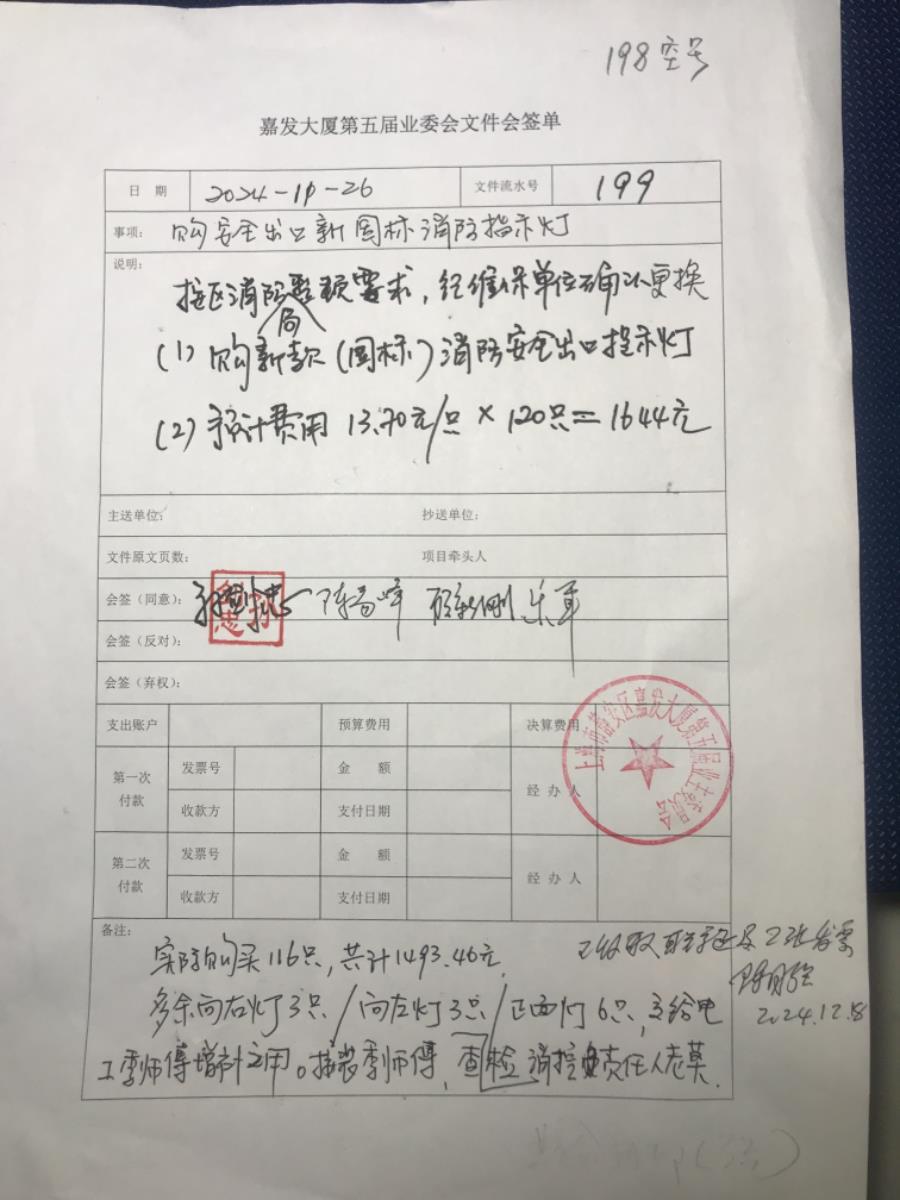 198空号
嘉发大厦第五届业委会文件会签单
日 期 2024-11-26 文件流水号 199
事项: 购安全出口新国标消防指示灯
说明:
按区消防局整顿要求,经维保单位确认更换
(1) 购新款(国标)消防安全出口指示灯
(2) 预计费用 13.70元/只 × 120只=1644元
主送单位: 抄送单位:
文件原文页数: 项目牵头人
会签(同意):
会签(反对):
会签(弃权):
支出账户 预算费用 决算费用
第一次付款 发票号 金 额 经办人
收款方 支付日期
第二次付款 发票号 金 额 经办人
收款方 支付日期
上海市静安区嘉发大厦第五届业主委员会
备注:
实际购买116只,共计1493.46元
多余向右灯3只/向左灯3只/正面灯6只,交给电
工季师傅增补之用。接装季师傅,查检消控责任人老莫.
已收取 及2张发票
2024.12.8